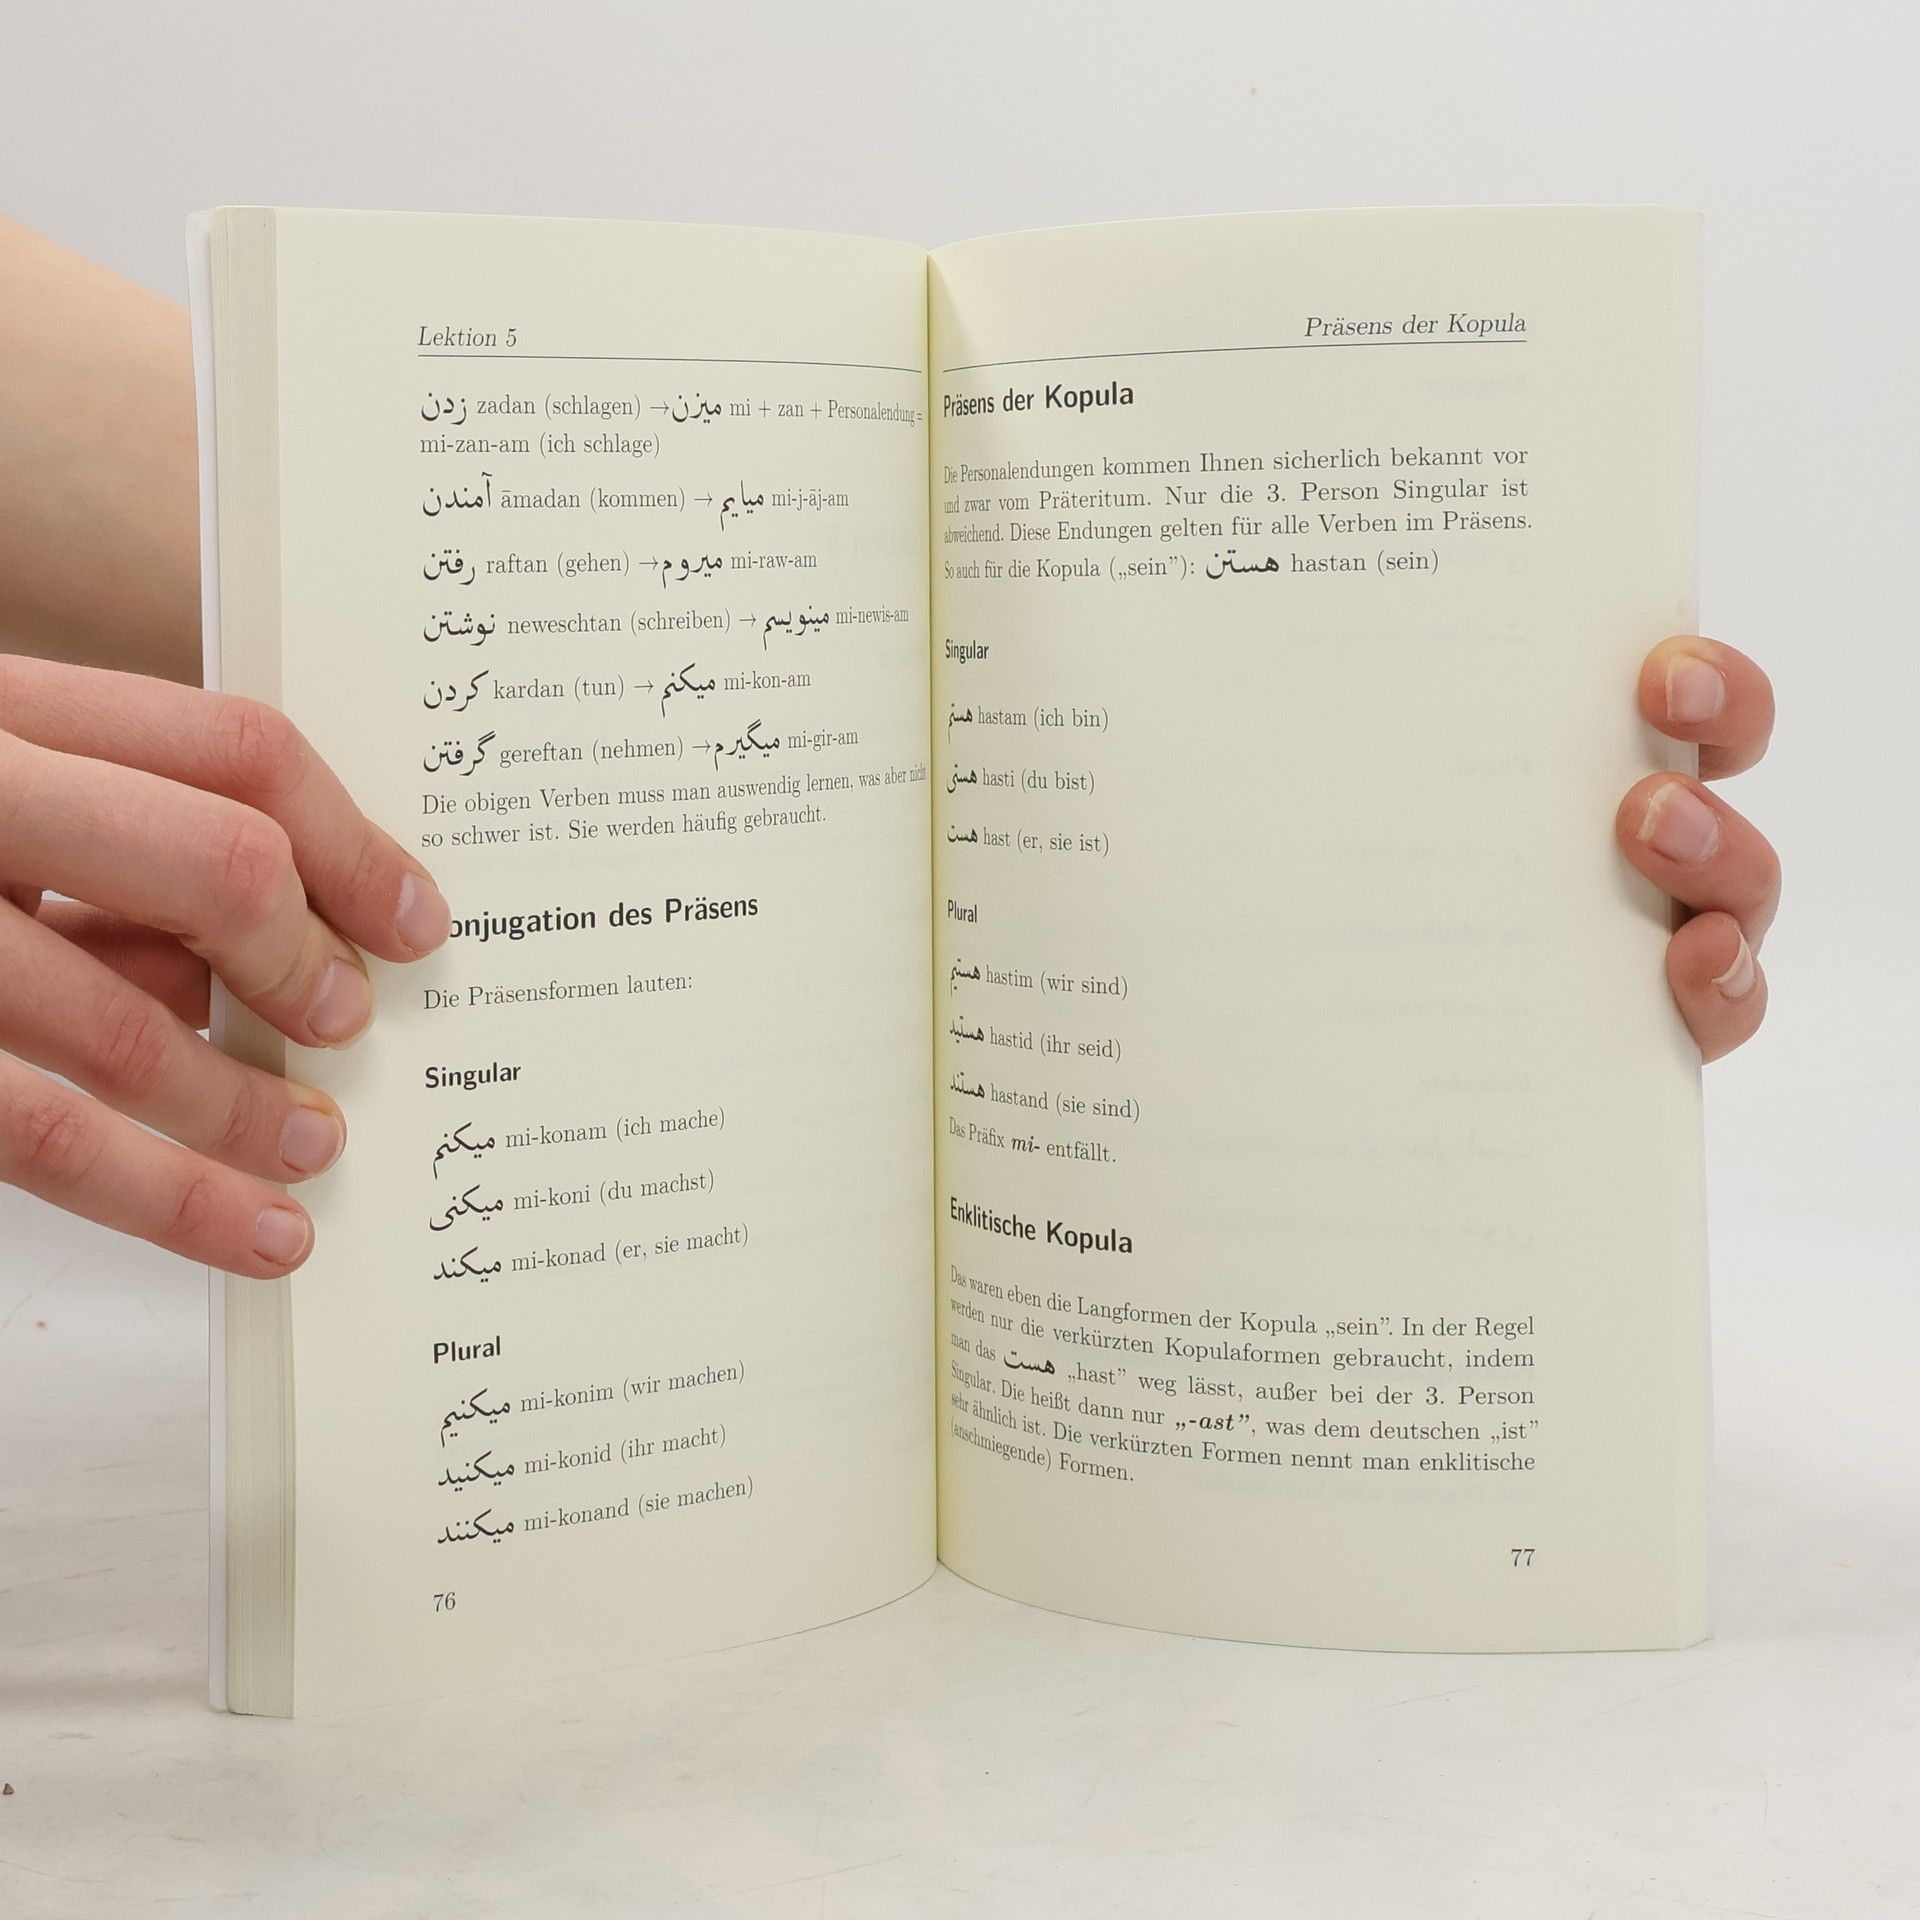 Lektion 5
زدن zadan (schlagen) →میزن mi + zan + Personalendung =
mi-zan-am (ich schlage)
آمندن āmadan (kommen) → میایم mi-j-āj-am
رفتن raftan (gehen) →میرو م mi-raw-am
نوشتن neweschtan (schreiben) → مینویسم mi-newis-am
کردن kardan (tun) → میکنم mi-kon-am
گرفتن gereftan (nehmen) →میگیرم mi-gir-am
Die obigen Verben muss man auswendig lernen, was aber nicht
so schwer ist. Sie werden häufig gebraucht.
onjugation des Präsens
Die Präsensformen lauten:
Singular
میکنم mi-konam (ich mache)
میکنی mi-koni (du machst)
میکند mi-konad (er, sie macht)
Plural
میکنیم mi-konim (wir machen)
میکنید mi-konid (ihr macht)
میکنند mi-konand (sie machen)
76
Präsens der Kopula
Präsens der Kopula
Die Personalendungen kommen Ihnen sicherlich bekannt vor
und zwar vom Präteritum. Nur die 3. Person Singular ist
abweichend. Diese Endungen gelten für alle Verben im Präsens.
So auch für die Kopula („sein”): هستن hastan (sein)
Singular
هستم hastam (ich bin)
هستی hasti (du bist)
هست hast (er, sie ist)
Plural
هستیم hastim (wir sind)
هستید hastid (ihr seid)
هستند hastand (sie sind)
Das Präfix mi- entfällt.
Enklitische Kopula
Das waren eben die Langformen der Kopula „sein”. In der Regel
werden nur die verkürzten Kopulaformen gebraucht, indem
man das هست „hast” weg lässt, außer bei der 3. Person
Singular. Die heißt dann nur „-ast”, was dem deutschen „ist”
sehr ähnlich ist. Die verkürzten Formen nennt man enklitische
(anschmiegende) Formen.
77